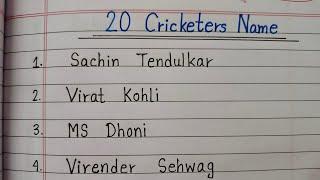 20 Cricketers Name
1. Sachin Tendulkar
2. Virat Kohli
3. MS Dhoni
4. Virender Sehwag